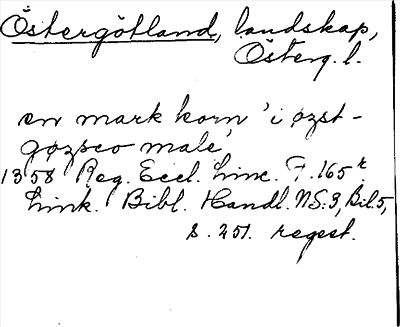 Östergötland, landskap,
Österg. l.
en mark korn 'i øzst-
gøzsco male'
1358 Reg. Eccl. Linc. F. 165 r.
Link. Bibl. Handl. NS:3, Bil. 5,
s. 251. regest.